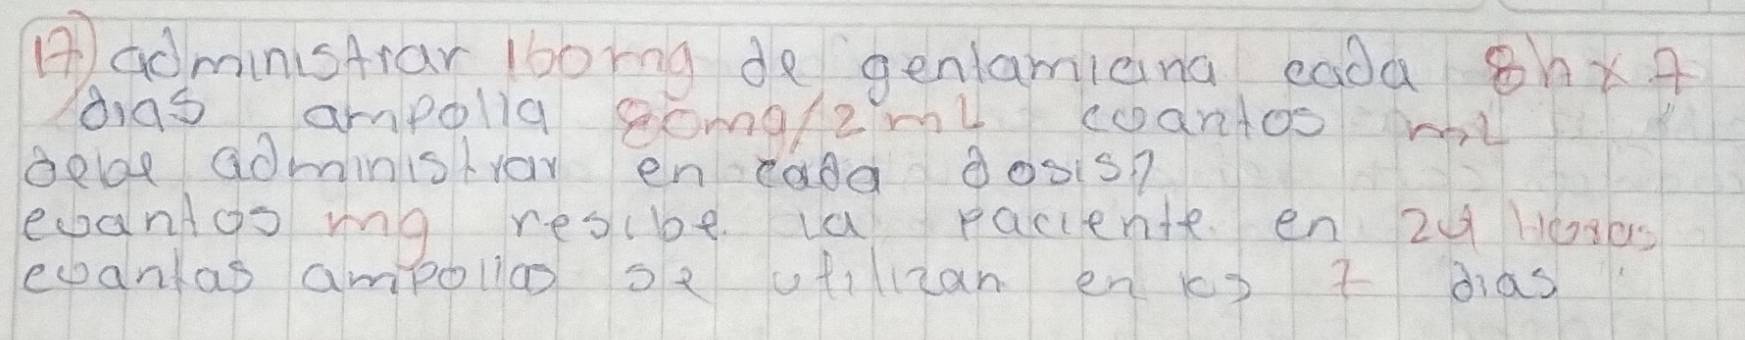 17) administrar 160mg de gentamicina cada 8h x 7
dias ampolla 80mg/2mL cuantos mL
debe administrar en cada dosis?
cuantos mg resibe la paciente en 24 Horas
cuantas ampollas se utilizan en los 7 dias